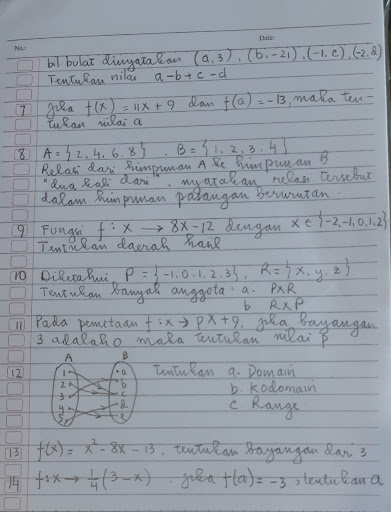 No.: Date:
bil bulat dinyatakan (a,3), (b,-21), (-1, c), (-2,d)
Tentukan nilai a-b+c-d
7 jika f(x) = 11x + 9 dan f(a) = -13, maka ten-
tukan nilai a
8 A = {2, 4, 6, 8}, B = {1, 2, 3, 4}
Relasi dari himpunan A ke himpunan B
"dua kali dari", nyatakan relasi tersebut
dalam himpunan pasangan berurutan.
9 Fungsi f : x → 8x-12 dengan x ∈ {-2,-1,0,1,2}
Tentukan daerah hasil
10 Diketahui P = {-1, 0, 1, 2, 3}, R = {x, y, z}
Tentukan banyak anggota : a. PxR
b. RxP
11 Pada pemetaan f : x → px+9, jika bayangan
3 adalah 0 maka tentukan nilai p
A B
12 1 2 3 4 5 a b c d e Tentukan a. Domain
b. Kodomain
c Range
13 f(x) = x² - 8x - 13, tentukan bayangan dari 3
14 f : x → 1/4 (3-x). jika f(a) = -3, tentukan a